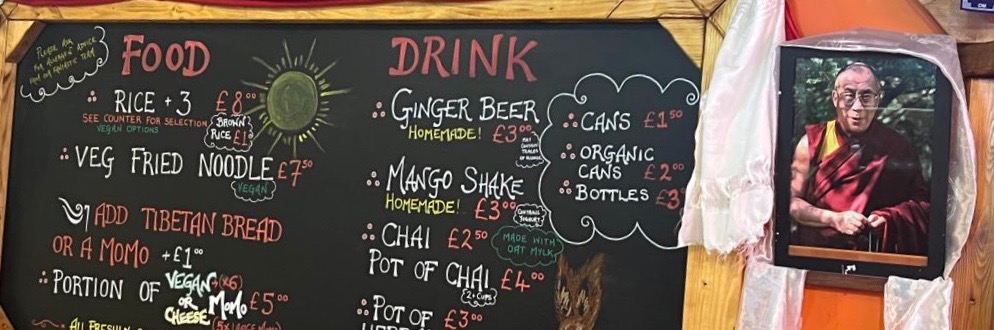 PLEASE ASK
FOR ALLERGY ADVICE
FROM OUR FANTASTIC TEAM
FOOD
RICE + 3 £8⁰⁰
SEE COUNTER FOR SELECTION
VEGAN OPTIONS
BROWN
RICE £1
VEG FRIED NOODLE £7⁵⁰
VEGAN
ADD TIBETAN BREAD
OR A MOMO +£1⁰⁰
PORTION OF VEGAN (x6)
OR
CHEESE MOMO £5⁰⁰
ALL FRESHLY
DRINK
GINGER BEER
HOMEMADE! £3⁰⁰
MAY
CONTAIN
TRACES
OF ALCOHOL
MANGO SHAKE
HOMEMADE! £3⁰⁰
CONTAINS
YOGHURT
CHAI £2⁵⁰
MADE WITH
OAT MYLK
POT OF CHAI £4⁰⁰
2+ CUPS
POT OF £3⁰⁰
CANS £1⁵⁰
ORGANIC
CANS £2⁰⁰
BOTTLES £3